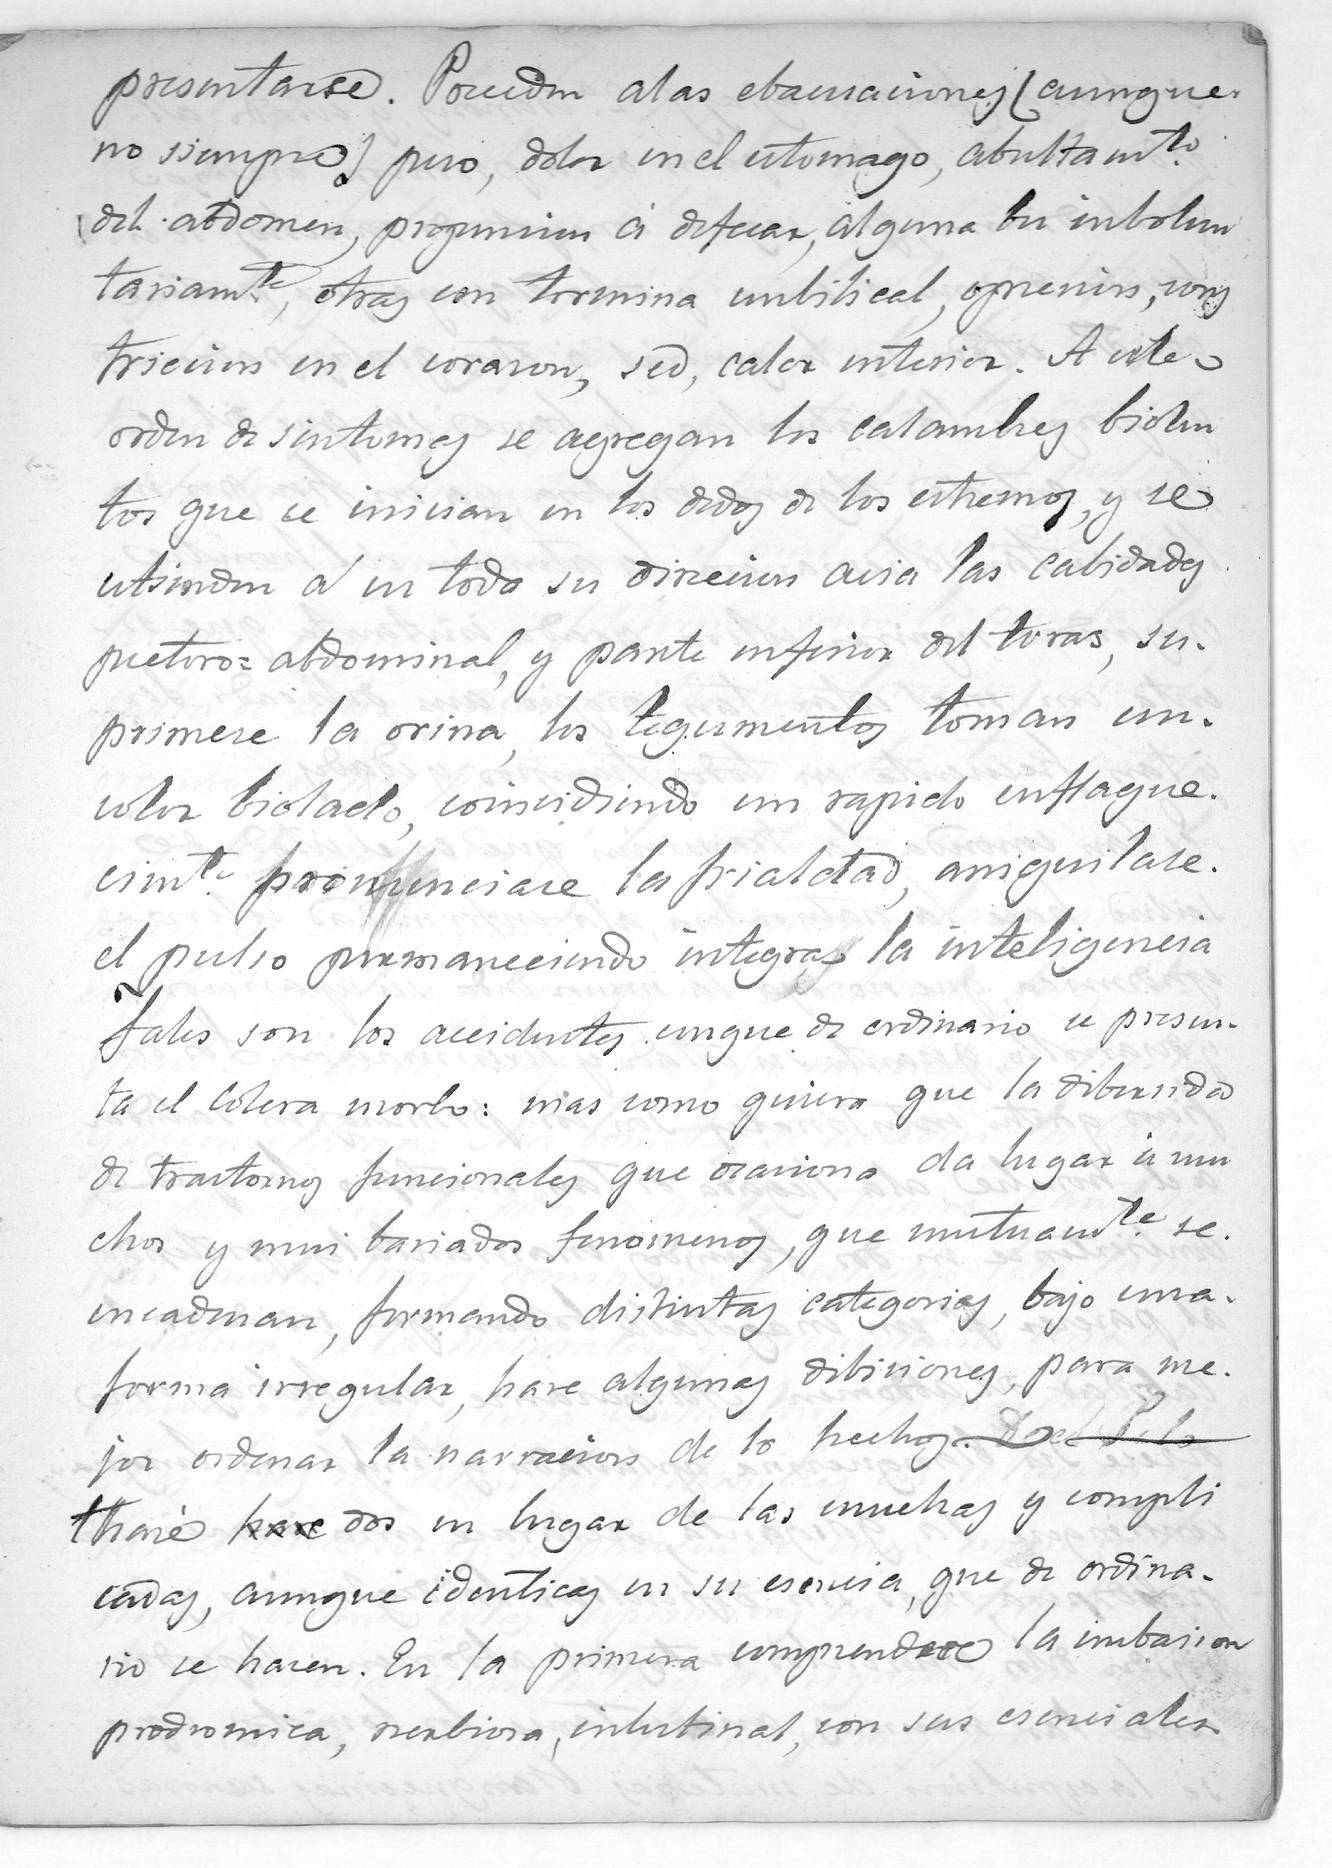 presentarse. Preceden alas ebacuaciones (aunque
no siempre) peso, dolor en el estomago, abultamto.
del abdomen, propension á defecar, alguna bes inbolun
tariamte., otras con tormina unbilical, opresion, cons
tricion en el corazon, sed, calor interior. A este
orden de sintomas se agregan los calambres biolen
tos que se inician en los dedos de los estremos, y se
estienden á en toda su direcion acia las cabidades
pectoro= abdominal, y parte inferior del toras, su-
primese la orina, los tegumentos toman un
color biolado, coincidiendo un rapido enflaque-
cimto. pronunciase la frialdad, aniquilase
el pulso permaneciendo integra la inteligencia
Tales son los accidentes conque de ordinario se presen-
ta el Colera morbo: mas como quiera que la dibersidad
de trastornos funcionales que ocasiona da lugar á mu
chos y mui bariados fenomenos, que mutuamte. se
encadenan, formando distintas categorias, bajo una
forma irregular, hare algunas dibiciones, para me-
jor ordenar la narracion de lo hechos.
haré hare dos en lugar de las muchas y compli
cadas, aunque identicas en su esencia, que de ordina-
rio se hacen. En la primera comprendere la inbasion
prodromica, nerbiosa, intestinal, con sus esenciales